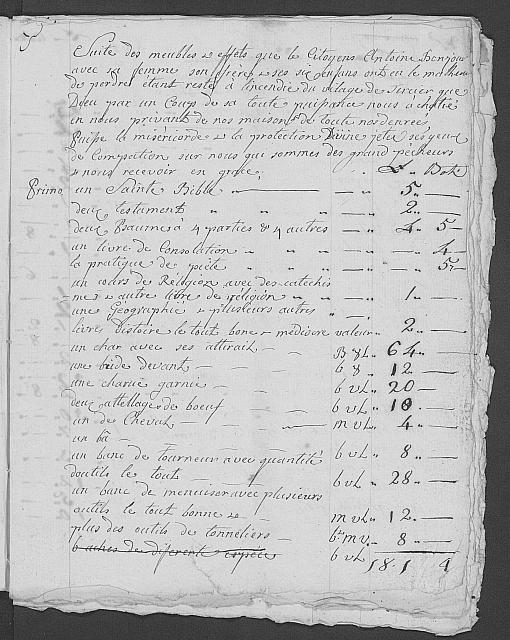 Suite des meubles & effets que le Citoyens Antoine Bonjour
avec sa femme son frere & ses six enfans ont eu le malheur
de perdre étant resté à l'incendie du vilage de que
Dieu par un Coup de sa toute puissance nous à chatié
en nous privant de nos maisons & de toute nos denrées
Puisse la miséricorde & la protection Divine jeter ses yeux
de Compation sur nous qui sommes des grand pecheurs
& nous recevoir en grace, L. „ Batz
Primo un Sainte Bible „ — — „ 5 „ —
deux testament „ „ „ — „ 2 „ —
deux Psaumes à 4 parties & 4 autres — „ 4 „ 5 —
un livre de Consolation „ „ „ — „ — „ 4 —
la pratique de piété „ „ „ — „ — „ 5 —
un cours de Réligion avec des catechis
-me & autre livre de réligion „ „ — „ 1 „ —
une Géographie & plusieurs autres „ —
livres d'histoire le tout bone & médiocre valeur „ 2 „ —
un char avec ses attirail — — B & L „ 64 „ —
une bride devant — — b & „ 12 —
une charue garnie — — b v L „ 20 —
deux attellage de boeuf b v L „ 10 „ —
un de Cheval — — m v L „ 4 „ —
un bâ —
un banc de tourneur avec quantité b v L „ 8 „ —
d'outils le tout — — b v L „ 28 „ —
un banc de menuiser avec plusieurs
outils le tout bonne & — m v L „ 12 „ —
plus des outils de tonneliers — b m v „ 8 „ —
6 aches de diferent espèce b v L 181 4